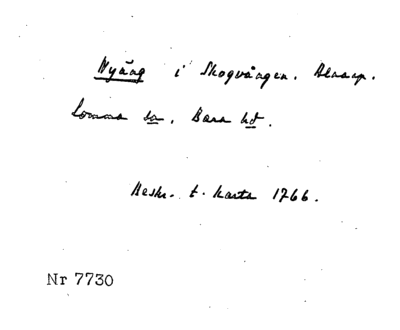 Nyäng i Skogvången. Alnarp.
Lomma sn, Bara hd.
Beskr. t. karta 1766.
Nr 7730